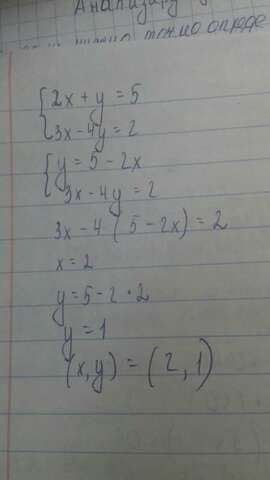 Анализ
можно опреде
{2x + y = 5
3x - 4y = 2
{y = 5 - 2x
3x - 4y = 2
3x - 4 (5 - 2x) = 2
x = 2
y = 5 - 2 · 2
y = 1
(x, y) = (2, 1)